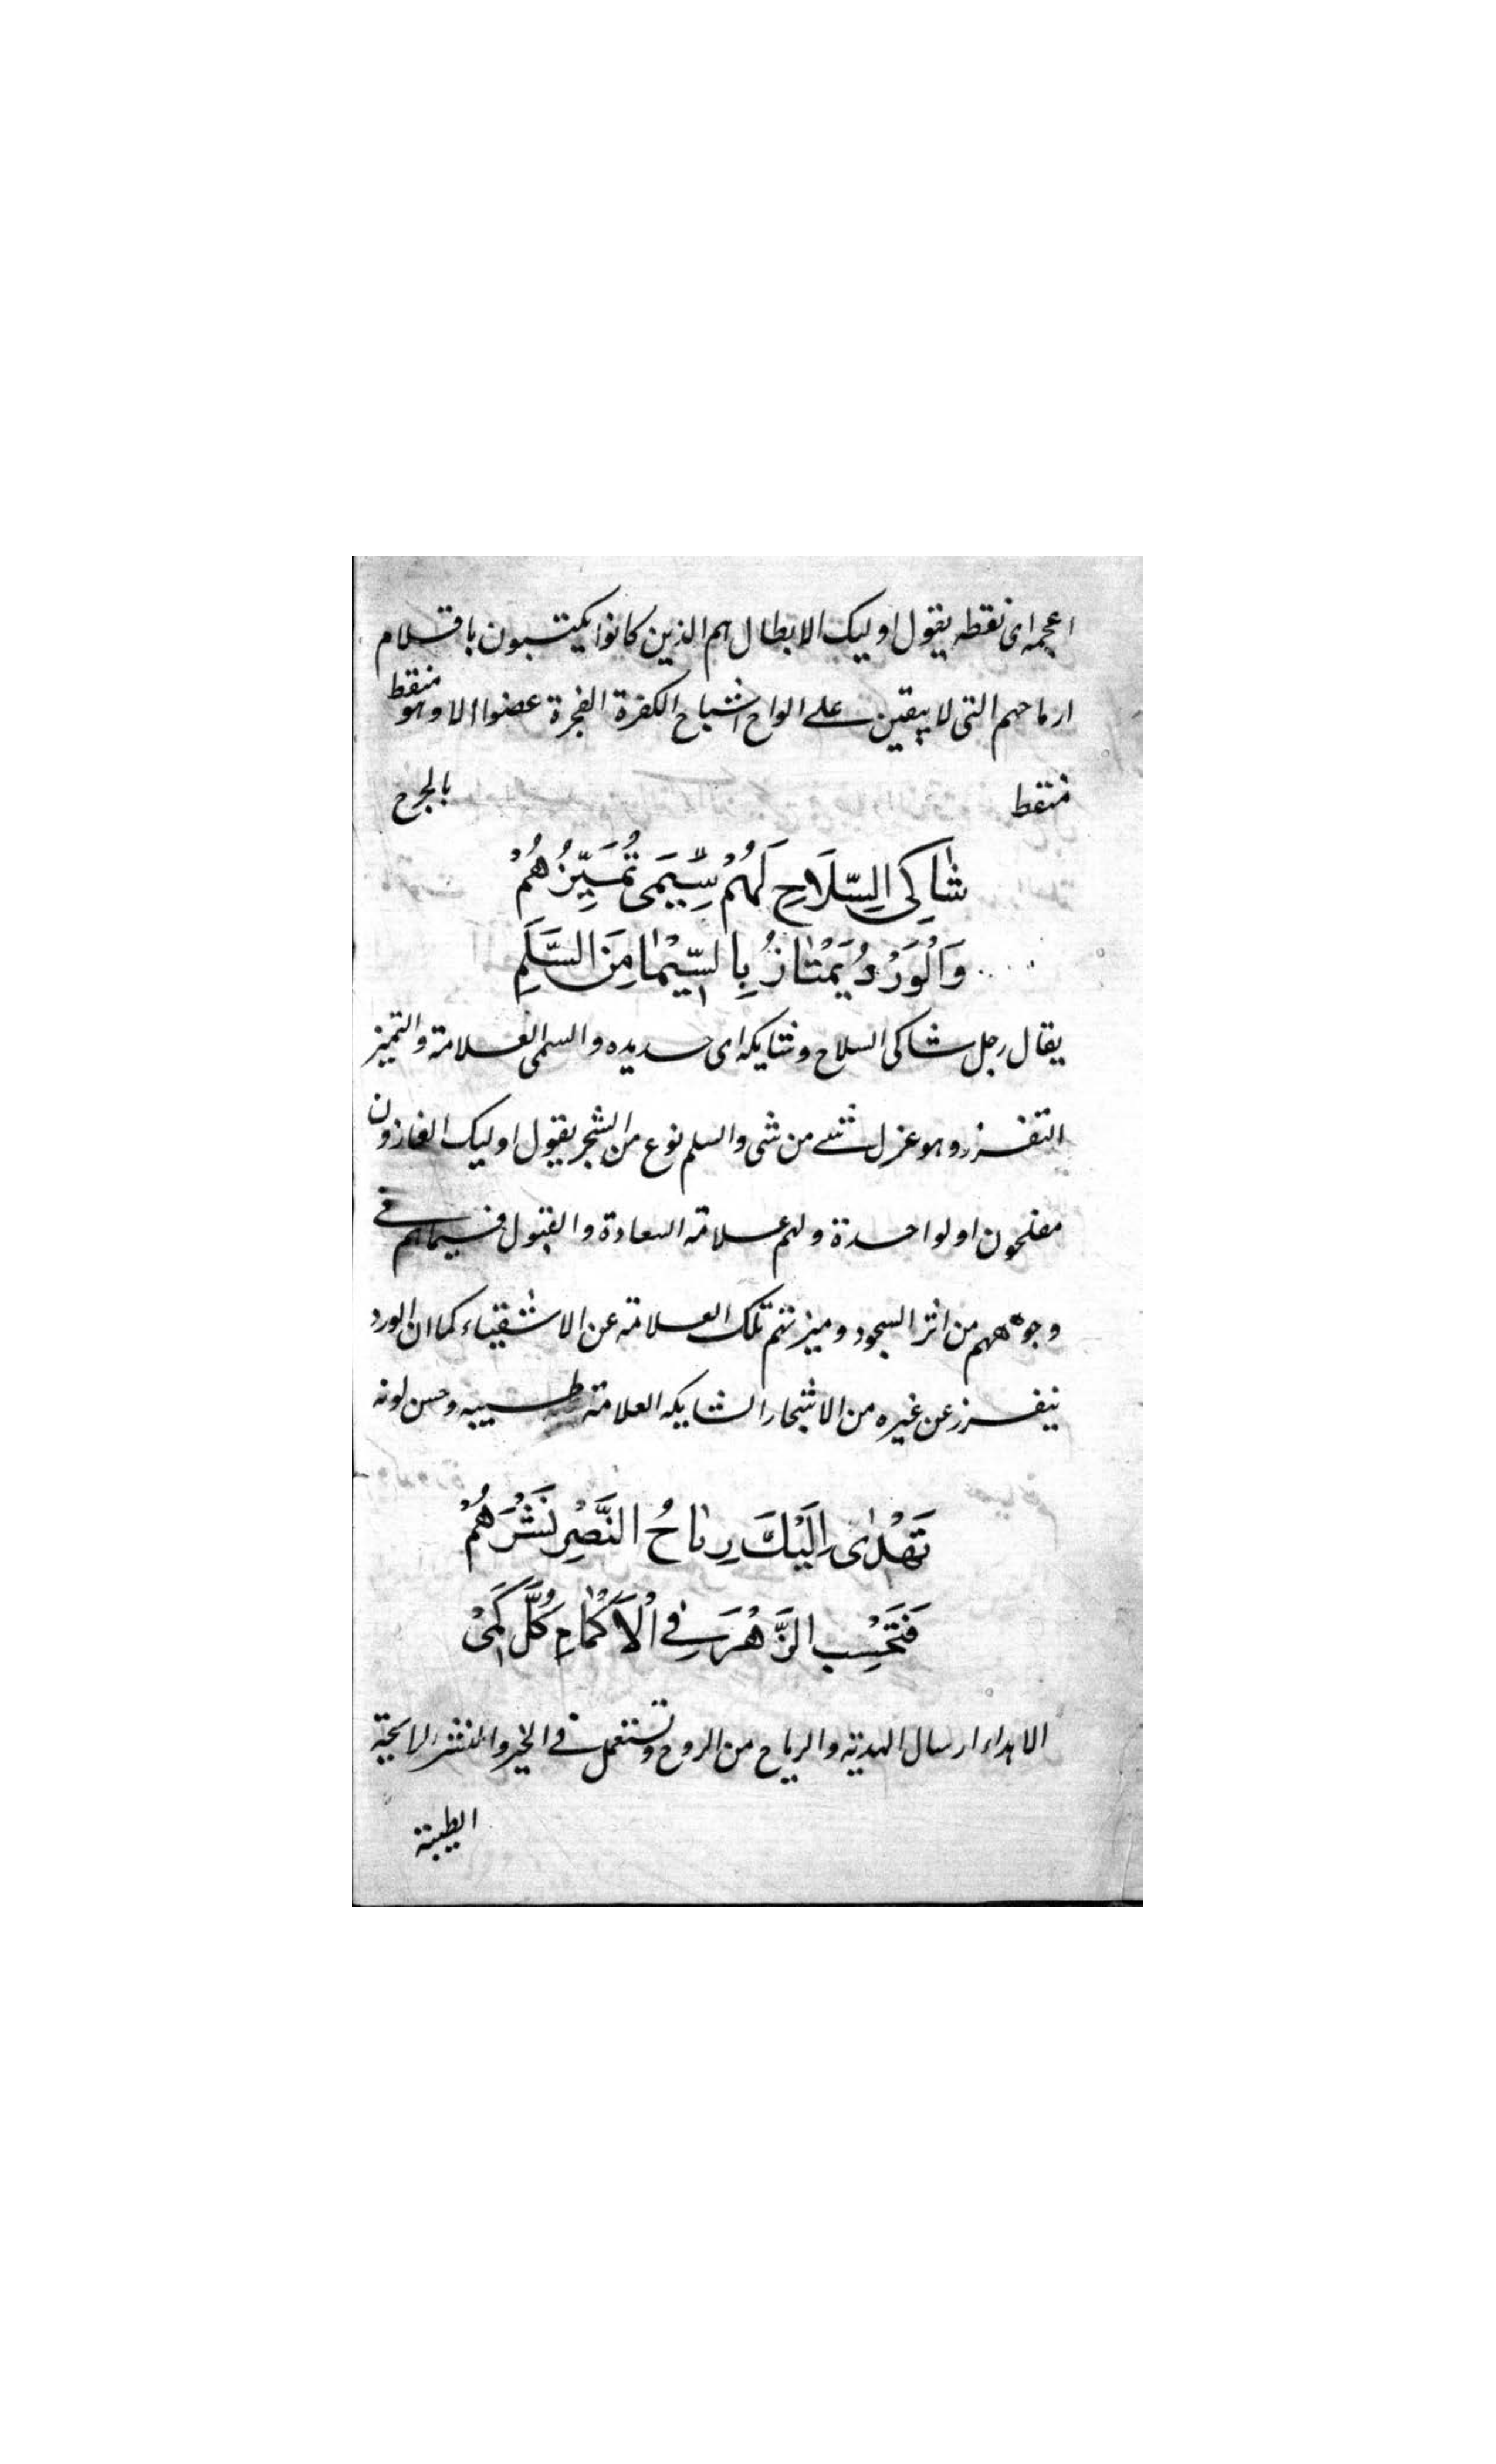 اعجمه اى نقطه يقول اوليك الابطال هم الذين كانوا يكتبون باقلام
ارماحهم التى لا يبقين على الواح اشباح الكفرة الفجرة عضوا الا وهو منقط
منقط بالجرح
شَاكِى السِّلَاحِ لَهُمْ سِيمَى تُمَيِّزُهُمْ
وَالْوَرْدُ يَمْتَازُ بِالسِّيْمَا مِنَ السَّلَمِ
يقال رجل شاكى السلاح وشايكه اى حديده والسمى العلامة والتميز
التفرز وهو عزل شئ من شى والسلم نوع من الشجر يقول اوليك الغازون
مفلحون اولوا حدة ولهم علامة السعادة والقبول فسيماهم فى
وجوههم من اثر السجود وميزتهم تلك العلامة عن الاشقياء كما ان الورد
يتفرز عن غيره من الاشجار الشايكه العلامة طيبه وحسن لونه
تَهْدٰى اِلَيْكَ رِيَاحُ النَّصْرِ نَشْرَهُمْ
فَتَحْسِبُ الزَّهْرَ فِى الْاَكْمَامِ كُلَّ كَمِىْ
الاهداء ارسال الهدية والرياح من الروح وتستعمل فى الخير والنشر الرايحة
الطيبة